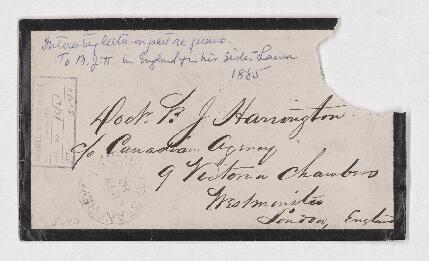 Interesting letter in part re piano.
To B. J. H in England fr his Sister Laura
1885
Doctr B. J. Harrington
c/o Canadian Agency
9 Victoria Chambers
Westminster
London, England